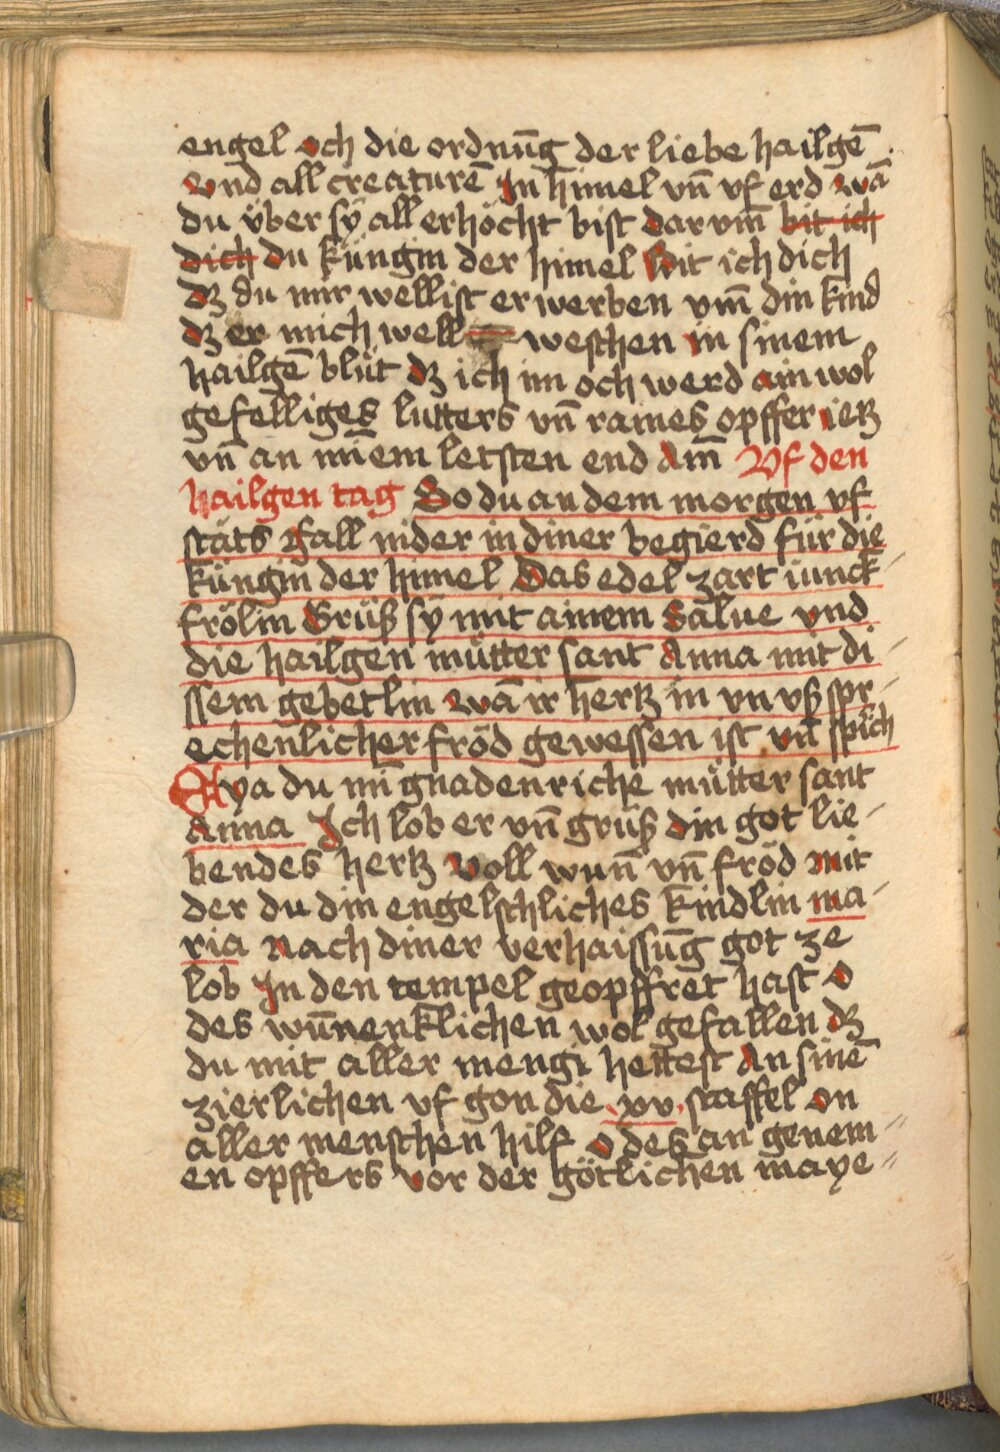 engel och die ordnūg der liebe hailgē
vnd all creaturē In himel vn̄ vf erd wā
du über sÿ all erhöcht bist dar vm̄ bit ich
dich du küngin der himel bit ich dich
dz du mir wellist er werben vm̄ din kind
dz er mich well weschen in sinem
hailgē blüt dz ich im och werd ain wol
gefelliges lutters vn̄ raines opffer ietz
vn̄ an mīem letsten end Am̄ Vf den
hailgen tag So du an dem morgen vf
stāts fall nider in diner begierd für die
küngin der himel Das edel zart iunck
frölin Grüß sÿ mit ainem Salue vnd
die hailgen mütter sant Anna mit di
ssem gebetlin wā ir hertz in vn vß spr
echenlicher fröd gewessen ist vn̄ sprich
Eya du mī gnadenriche mütter sant
Anna Ich lob er vn̄ grüß din got lie
bendes hertz voll wun̄ vn̄ fröd mit
der du din engelschliches kindlin ma
ria nach diner verhaissūg got ze
lob In den tempel geopffret hast O
des wūnenklichen wol gefallen dz
du mit aller mengi hettest An sinē
zierlichen vf gon die .xv. staffel on
aller menschen hilf o des an genem
en opffers vor der götlichen maye